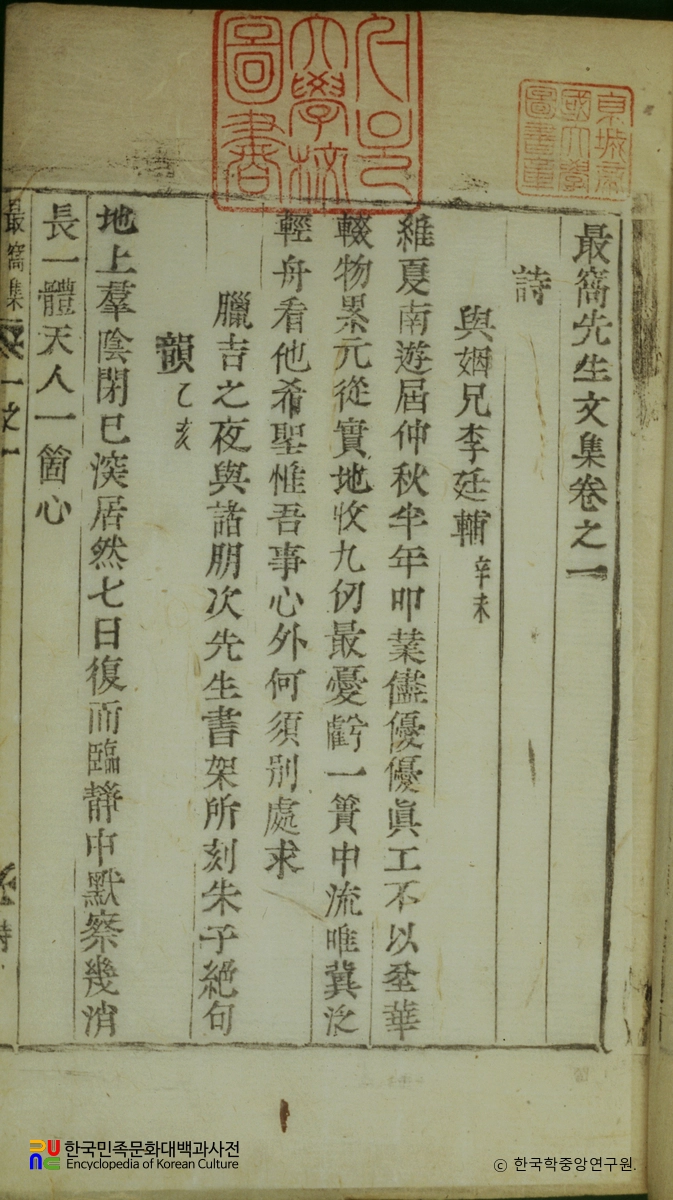 最窩先生文集卷之一
詩
與姻兄李廷輔 辛未
維夏南遊屆仲秋半年叩業儘優優眞工不以參華
輟物累元從實地收九仞最憂虧一簣中流唯冀泛
輕舟看他希聖惟吾事心外何須別處求
臘吉之夜與諸朋次先生書架所刻朱子絶句
韻 乙亥
地上羣陰閉已深居然七日復而臨靜中默察幾消
長一體天人一箇心
最窩集 卷一之一 詩
大學校
圖書
京城帝
國大學
圖書章
한국민족문화대백과사전
Encyclopedia of Korean Culture
ⓒ 한국학중앙연구원.